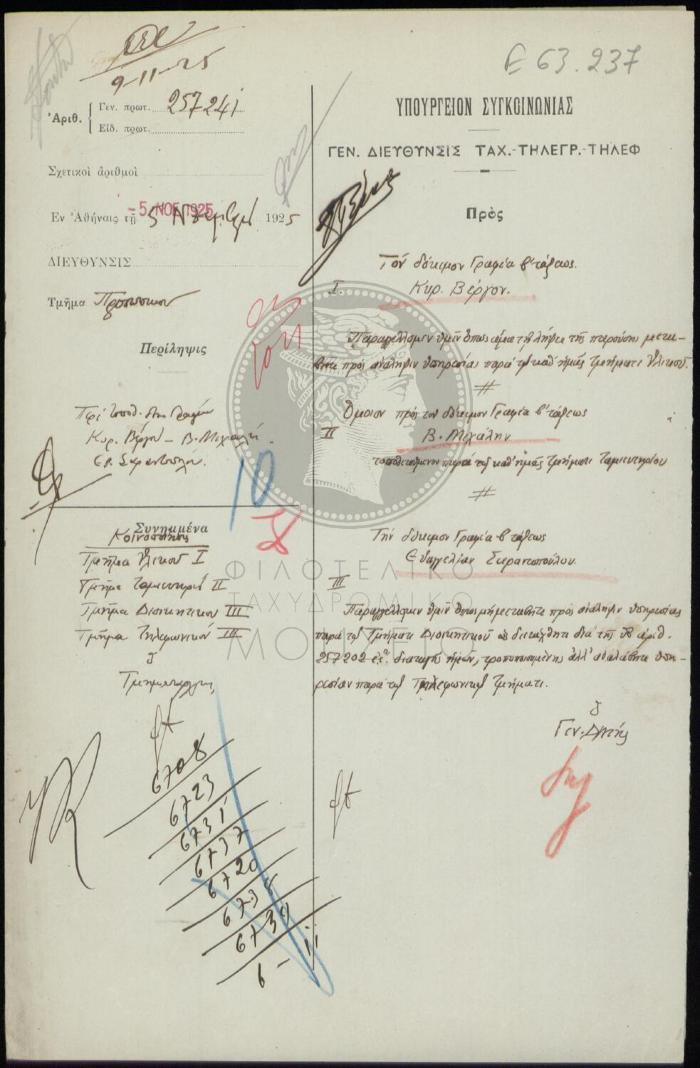 9-11-25
E 63.237
Ἀριθ.
Γεν. πρωτ. 257241
Εἰδ. πρωτ.
Σχετικοὶ ἀριθμοὶ
Ἐν Ἀθήναις τῇ 5 Νοεμβρίου 1925
-5 ΝΟΕ 1925
ΔΙΕΥΘΥΝΣΙΣ
Τμῆμα Προσωπικοῦ
Περίληψις
Κυρ. Βέργον - Β. Μιχάλην
Συνημμένα
Κοινοποίησις
Τμῆμα Ὑλικοῦ I
Τμῆμα Ταμιευτηρίου II
Τμῆμα Διοικητικοῦ III
Τμῆμα Τηλεφωνικοῦ III
Τμηματάρχης
6708
6723
6731
6737
6720
6738
6739
6 - 11
10
ΥΠΟΥΡΓΕΙΟΝ ΣΥΓΚΟΙΝΩΝΙΑΣ
ΓΕΝ. ΔΙΕΥΘΥΝΣΙΣ ΤΑΧ.-ΤΗΛΕΓΡ.-ΤΗΛΕΦ
Πρὸς
Τὸν δόκιμον Γραφέα β΄ τάξεως
I Κυρ. Βέργον.
Παραγγέλλομεν ὑμῖν ὅπως ἅμα τῇ λήψει τῆς παρούσης μετα-
βῆτε πρὸς ἀνάληψιν ὑπηρεσίας παρὰ τῷ καθ' ἡμᾶς τμήματι Ὑλικοῦ.
#
Ὅμοιον πρὸς τὸν δόκιμον Γραφέα β΄ τάξεως
II Β. Μιχάλην
τοποθετούμενον παρὰ τῷ καθ' ἡμᾶς τμήματι Ταμιευτηρίου
#
Τὴν δόκιμον Γραφέα β τάξεως
Εὐαγγελίαν Σαραντοπούλου.
III
Παραγγέλλομεν ὑμῖν ὅπως μὴ μεταβῆτε πρὸς ἀνάληψιν ὑπηρεσίας
παρὰ τῷ Τμήματι Διοικητικοῦ ὡς διετάχθητε διὰ τῆς ὑπ' ἀριθ.
257202 ἐ.ἔ. διαταγῆς ἡμῶν, τροποποιουμένης ἀλλ' ἀναλάβητε ὑπη-
ρεσίαν παρὰ τῷ Τηλεφωνικῷ Τμήματι.
Ὁ
Γεν. Δντής
ΦΙΛΟΤΕΛΙΚΟ
ΤΑΧΥΔΡΟΜΙΚΟ
ΜΟΥΣΕΙΟ